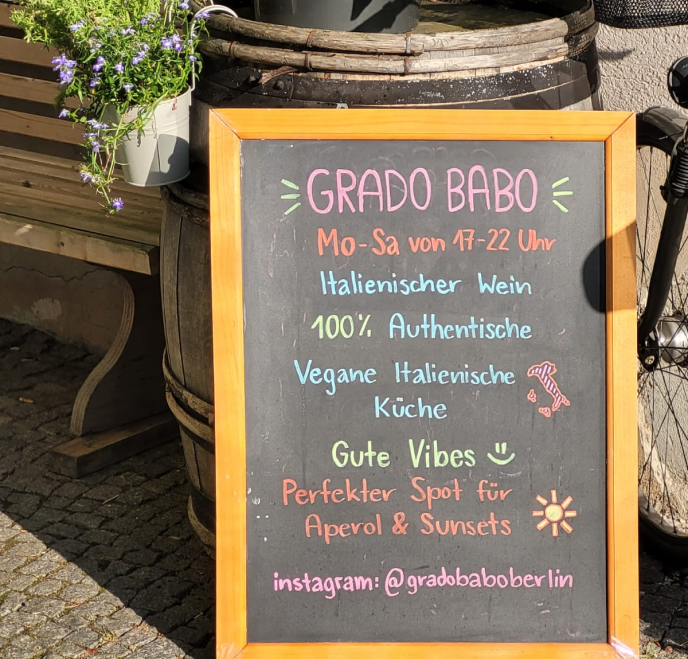 GRADO BABO
Mo-Sa von 17-22 Uhr
Italienischer Wein
100% Authentische
Vegane Italienische
Küche
Gute Vibes
Perfekter Spot für
Aperol & Sunsets
instagram: @gradobaboberlin